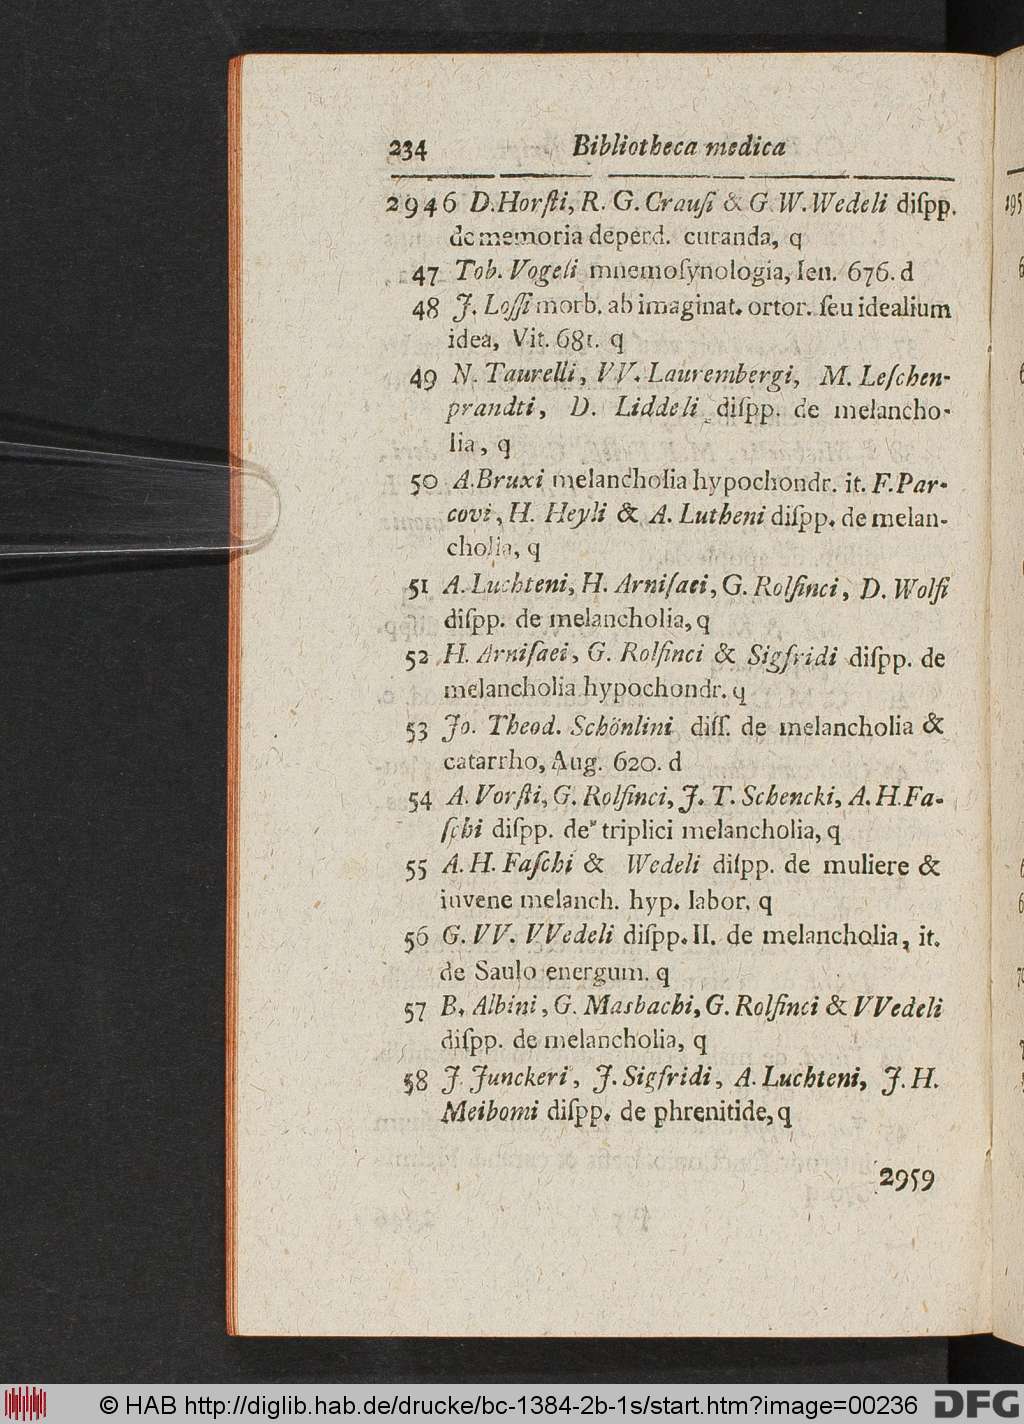 234 Bibliotheca medica
2946 D. Horſti, R. G. Crauſi & G. W. Wedeli diſpp.
de memoria deperd. curanda, q
47 Tob. Vogeli mnemoſynologia, Ien. 676. d
48 J. Loſſi morb. ab imaginat. ortor. ſeu idealium
idea, Vit. 681. q
49 N. Taurelli, VV. Laurembergi, M. Leſchen-
prandti, D. Liddeli diſpp. de melancho-
lia, q
50 A. Bruxi melancholia hypochondr. it. F. Par-
covi, H. Heyli & A. Lutheni diſpp. de melan-
cholia, q
51 A. Luchteni, H. Arniſaei, G. Rolfinci, D. Wolfi
diſpp. de melancholia, q
52 H. Arniſaei, G. Rolfinci & Sigfridi diſpp. de
melancholia hypochondr. q
53 Jo. Theod. Schönlini diſſ. de melancholia &
catarrho, Aug. 620. d
54 A. Vorſti, G. Rolfinci, J. T. Schencki, A. H. Fa-
ſchi diſpp. de triplici melancholia, q
55 A. H. Faſchi & Wedeli diſpp. de muliere &
iuvene melanch. hyp. labor. q
56 G. VV. VVedeli diſpp. II. de melancholia, it.
de Saulo energum. q
57 B. Albini, G. Masbachi, G. Rolfinci & VVedeli
diſpp. de melancholia, q
58 J. Junckeri, J. Sigfridi, A. Luchteni, J. H.
Meibomi diſpp. de phrenitide, q
2959
© HAB http://diglib.hab.de/drucke/bc-1384-2b-1s/start.htm?image=00236 DFG